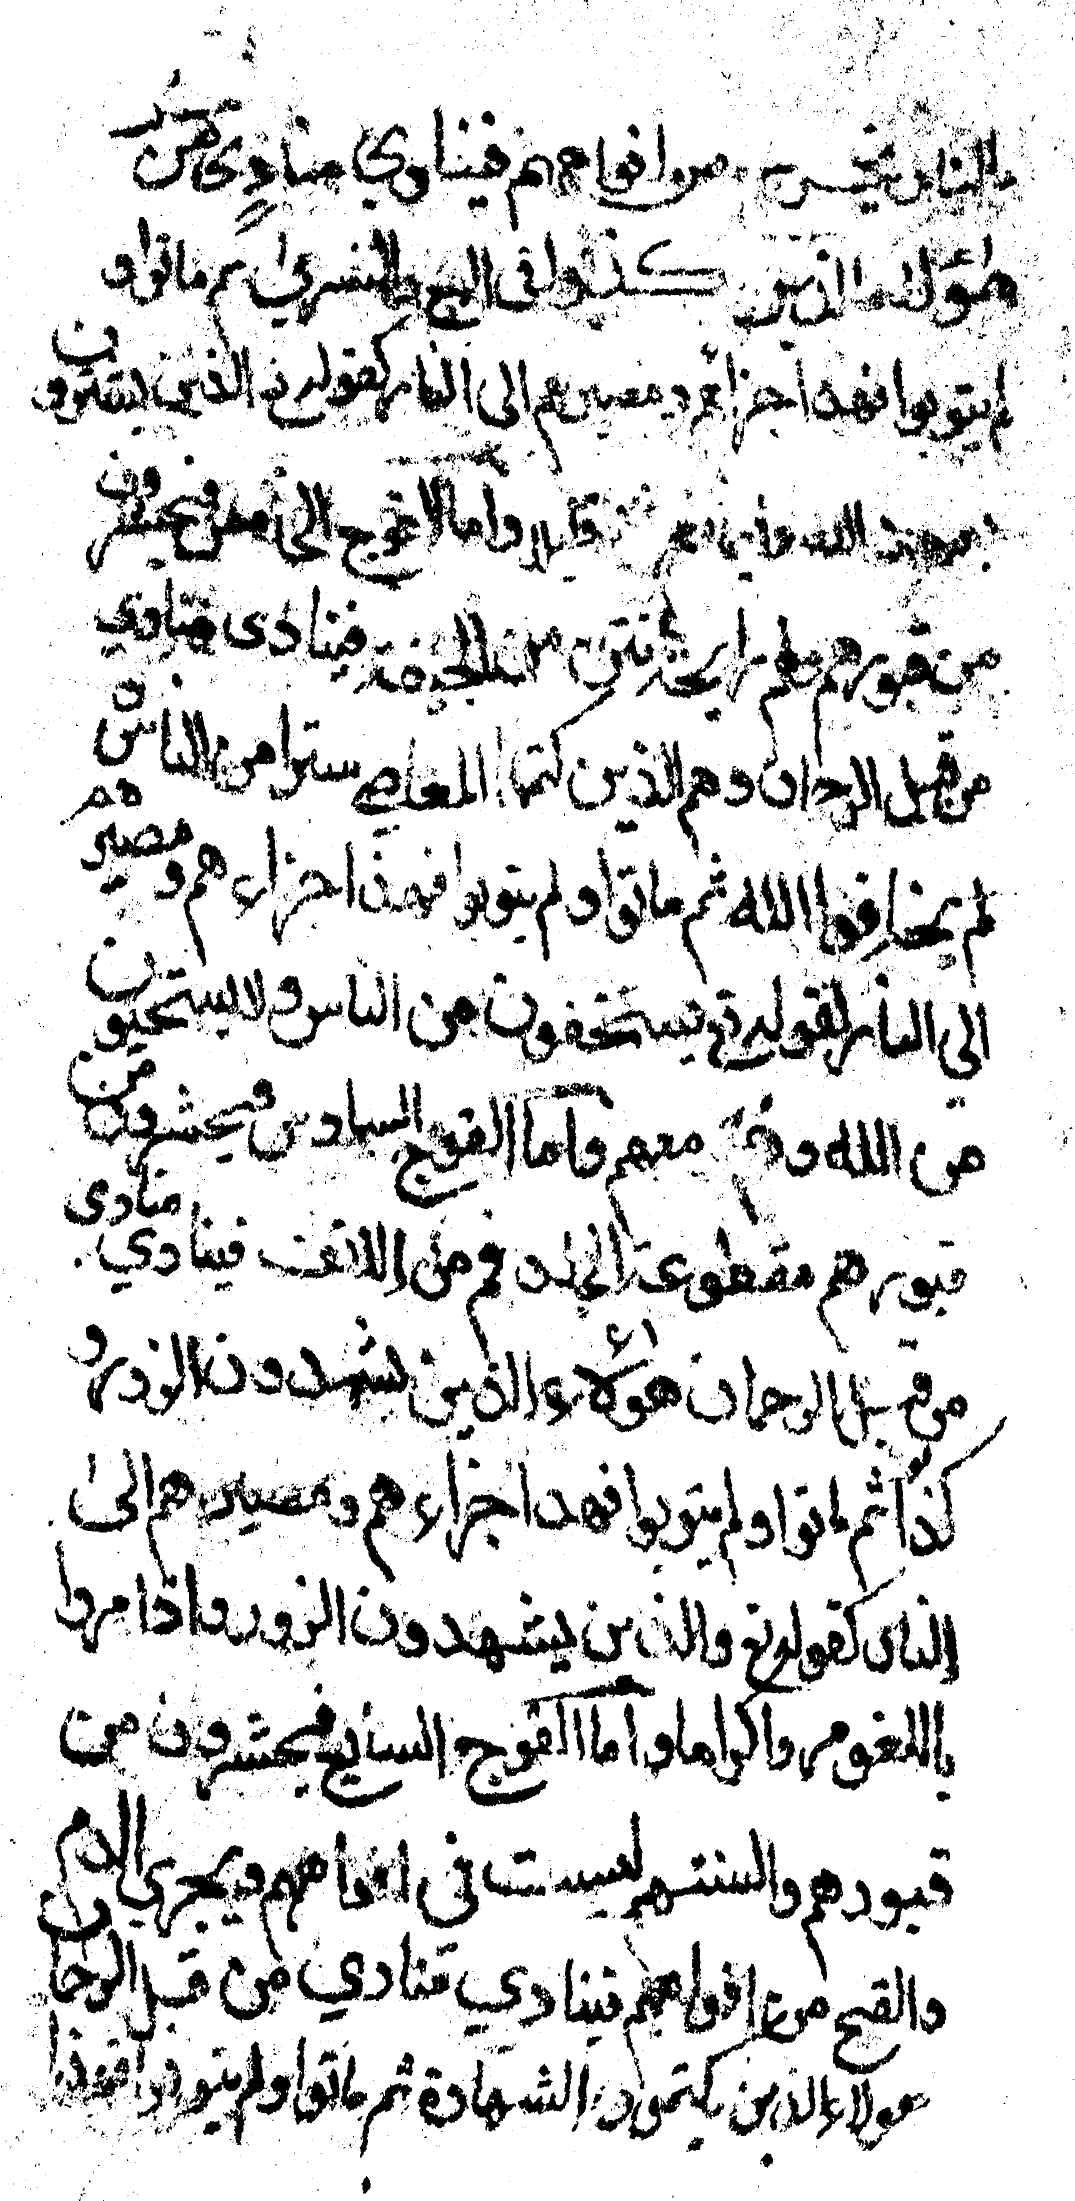 بالنار يخرج من افواههم فينادي منادي من
هؤلاء الذين كذبوا في البيع والشرى ثم ماتوا و
لم يتوبوا فهذا جزاؤهم ومصيرهم الى النار كقوله تع الذين يشترون
بعهد الله وايمانهم ثمنا قليلا واما الفوج الخامس فيحشرون
من قبورهم ولهم رايحة انتن من الجيفة فينادى منادي
من قبل الرحمان وهم الذين كتموا المعاصي سترا من الناس
لم يخافوا الله ثم ماتوا ولم يتوبوا فهذا جزاءهم ومصيرهم
الى النار لقوله تع يستخفون من الناس ولا يستخفون
من الله وهو معهم واما الفوج السادس فيحشرون من
قبورهم مقطوعة الحلقوم من الانف فينادي منادى
من قبل الرحمان هؤلاء الذين يشهدون الزور و
كذبا ثم ماتوا ولم يتوبوا فهذا جزاءهم ومصيرهم الى
النار كقوله تع والذين يشهدون الزور واذا مروا
باللغو مروا كراما واما الفوج السابع فيحشرون من
قبورهم والسنتهم ليست في افواههم ويجري الدم
والقيح من افواههم فينادي منادي من قبل الرحمان
هولاء الذين يكتمون الشهادة ثم ماتوا ولم يتوبوا فهذا